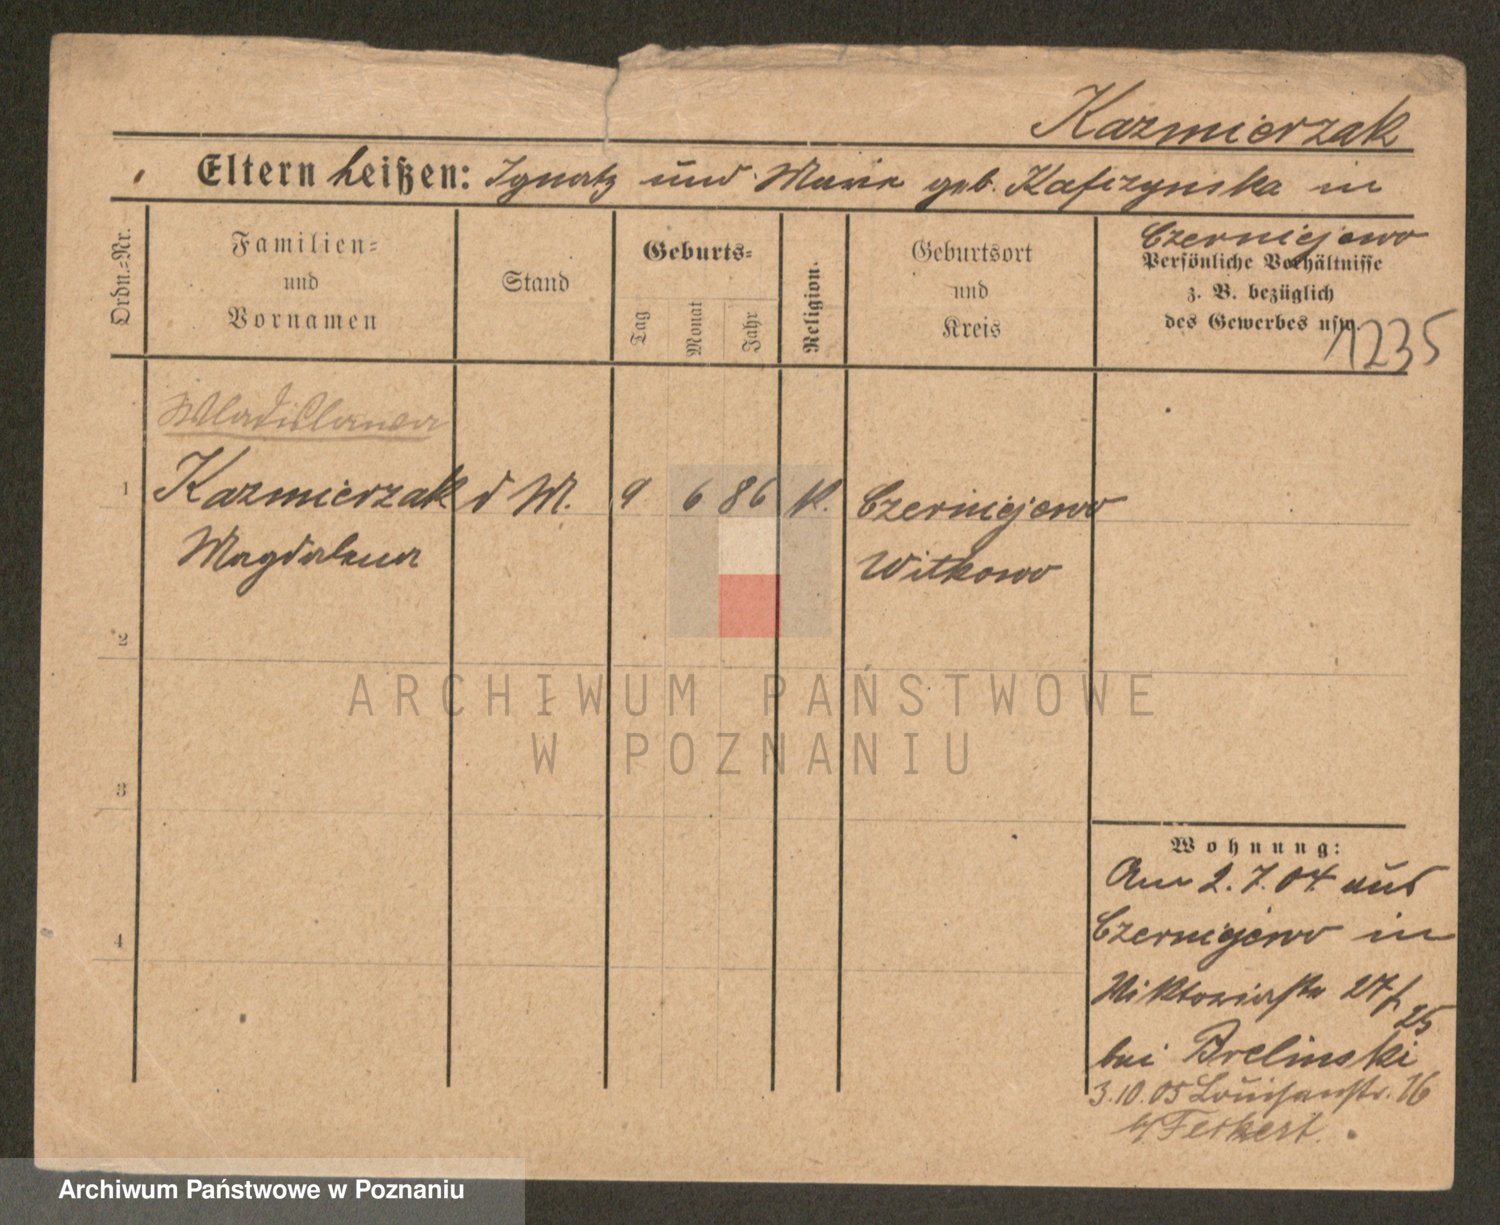 Kazmierzak
Eltern heißen: Ignatz und Marie geb. Kaficzynska in
Czerniejewo
Ordn.=Nr.
Familien=
und
Vornamen
Stand
Geburts=
Tag
Monat
Jahr
Religion.
Geburtsort
und
Kreis
Persönliche Verhältnisse
z. B. bezüglich
des Gewerbes usw.
1235
Wladislawa
1 Kazmierzak d M. 9 6 86 K. Czerniejewo
Magdalena Witkowo
2
ARCHIWUM PAŃSTWOWE
W POZNANIU
3
4
Wohnung:
Am 2.7.04 aus
Czerniejewo in
Wiktoriastr 27
25
bei Brelinski
3.10.05 Louisenstr. 16
b/ Feckert.
Archiwum Państwowe w Poznaniu